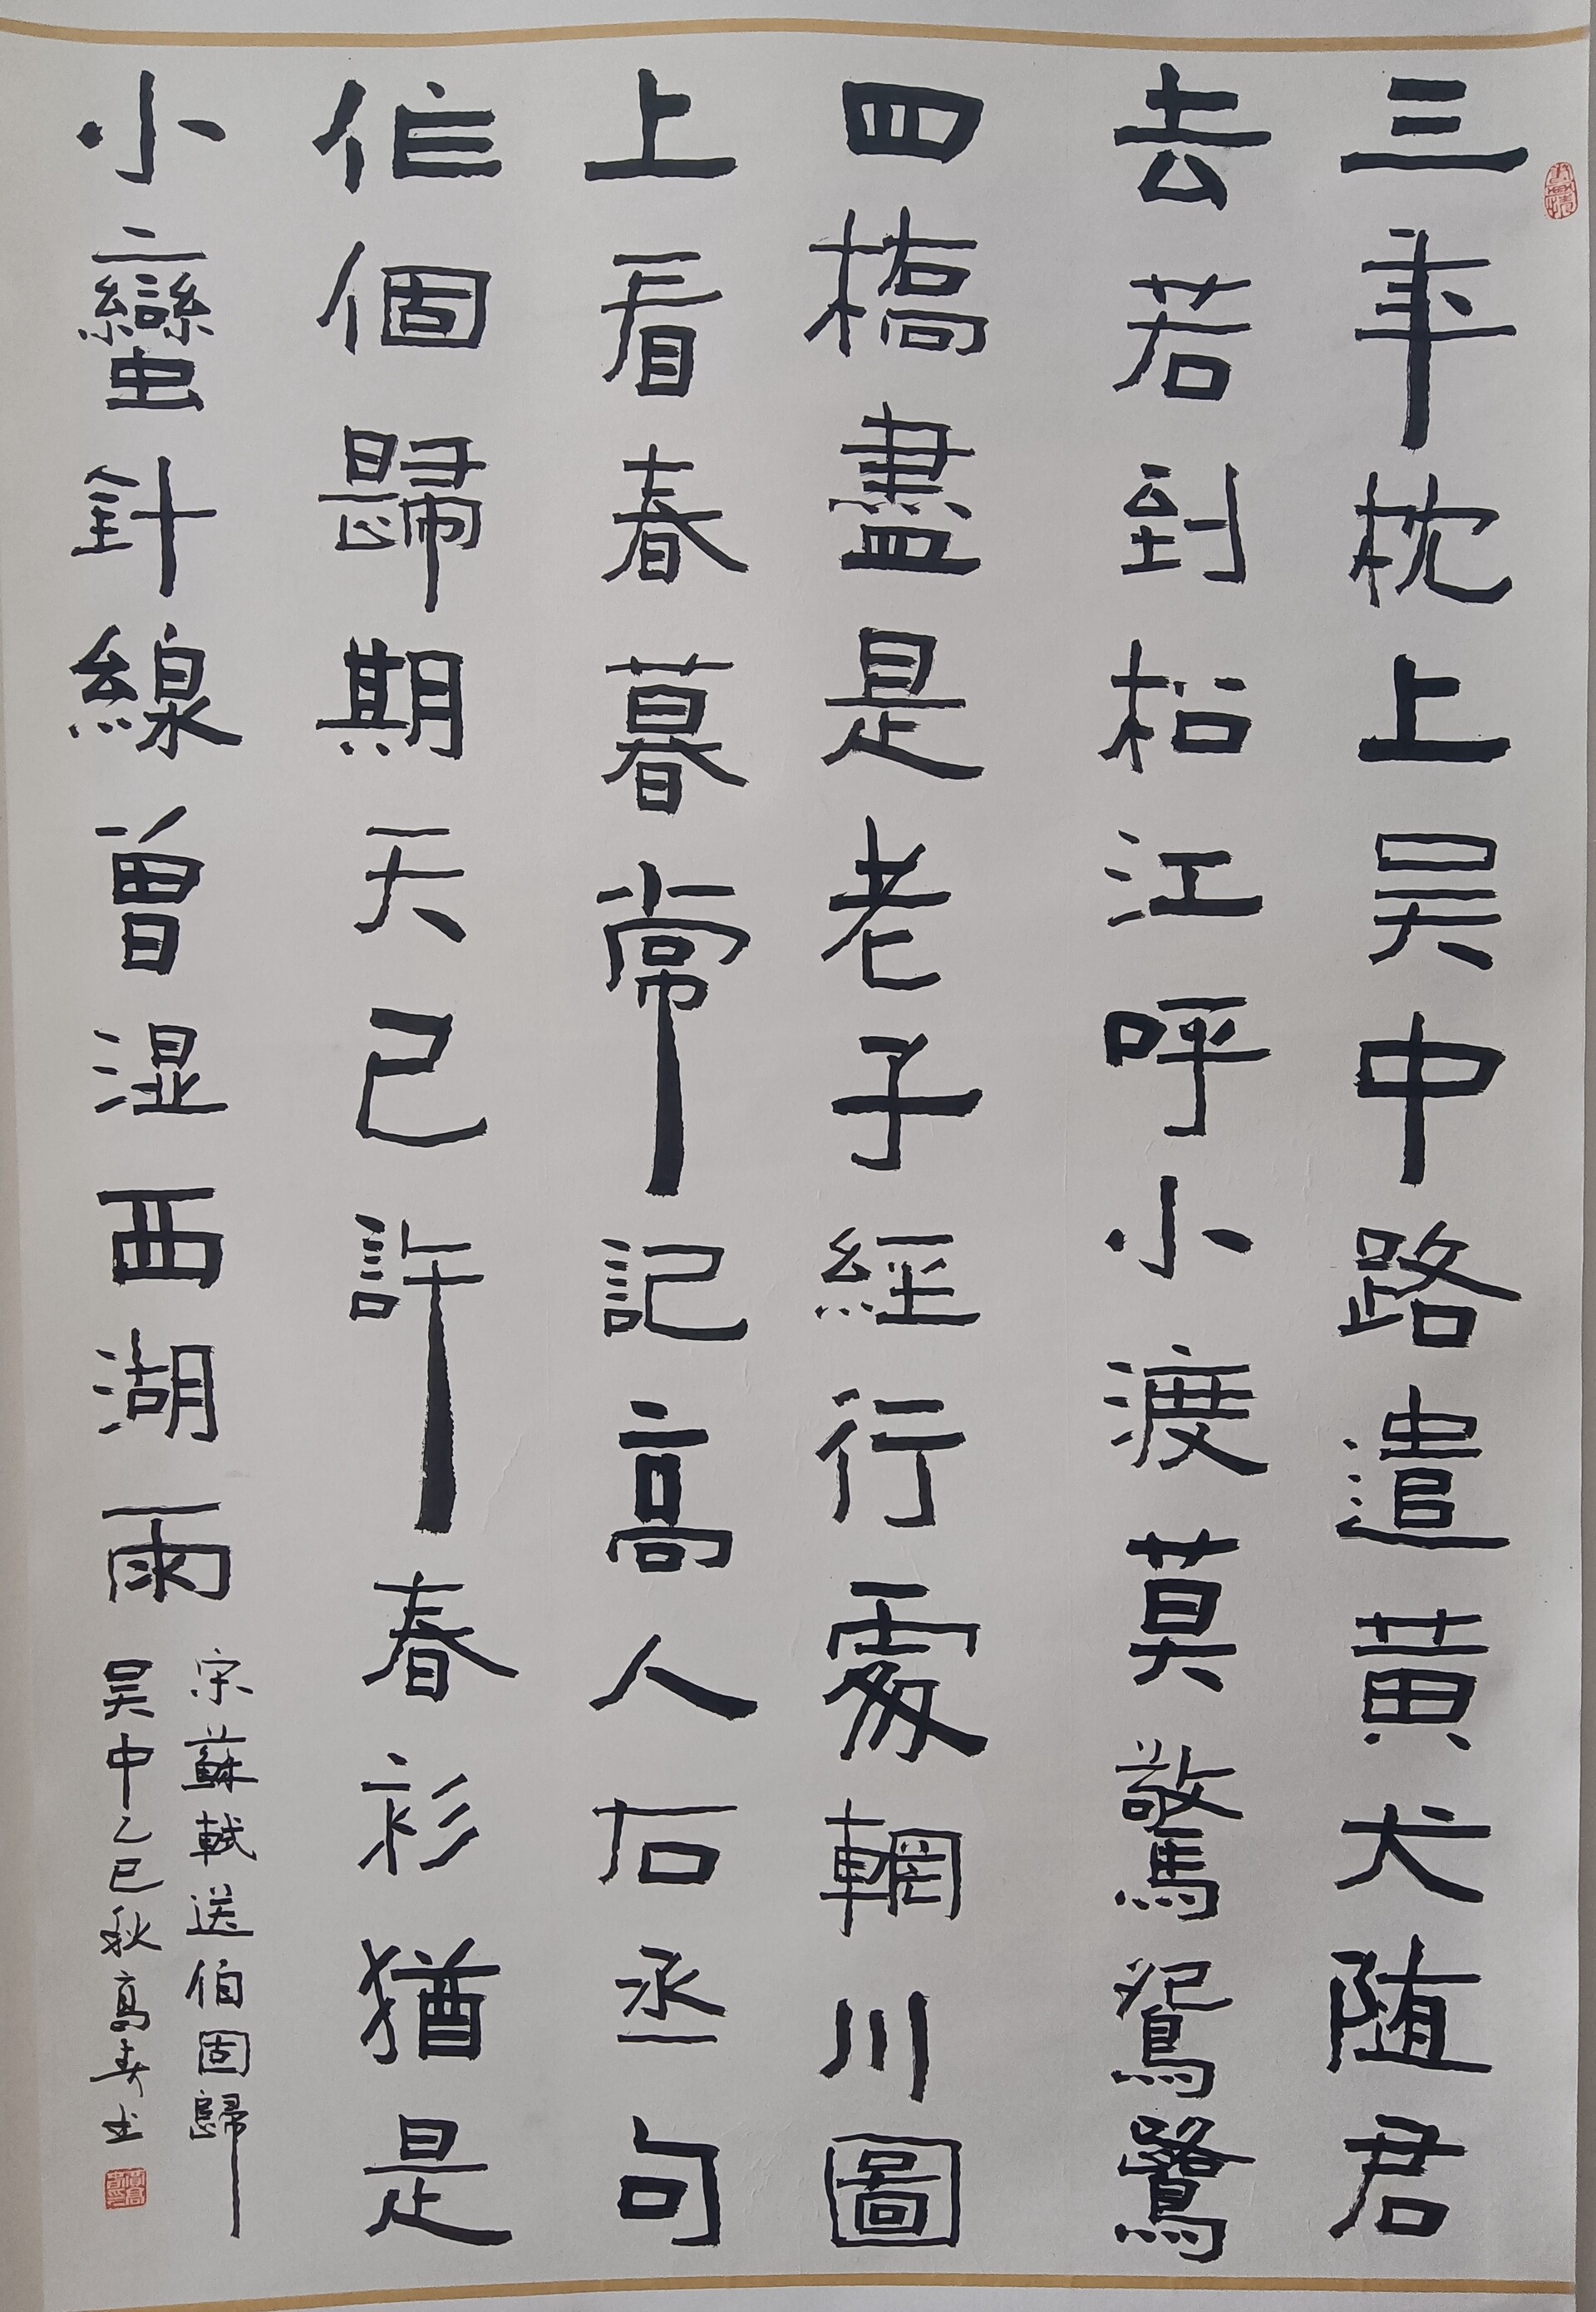 三年枕上吴中路遣黄犬随君
去若到松江呼小渡莫驚鴛鷺
四橋盡是老子經行處輞川圖
上看春暮常記高人右丞句
作個歸期天已許春衫猶是
小蠻針線曾湿西湖雨
宋蘇軾送伯固歸
吴中乙巳秋高寿书